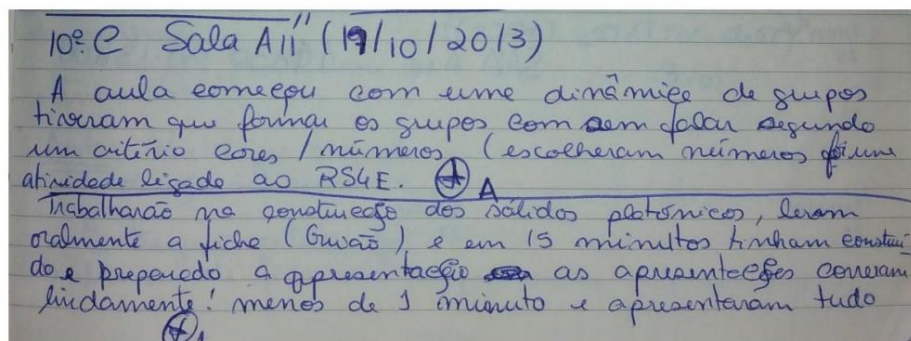 10º C Sala A11 (17/10/2013)
A aula começou com uma dinâmica de grupos
tiveram que formar os grupos com sem falar segundo
um critério cores / números (escolheram números foi uma
atividade ligada ao RS4E. + A
Trabalharão na construcção dos sólidos platónicos, leram
oralmente a ficha (Guião), e em 15 minutos tinham construi
do e preparado a apresentacção as apresentações correram
lindamente! menos de 1 minuto e apresentaram tudo
+